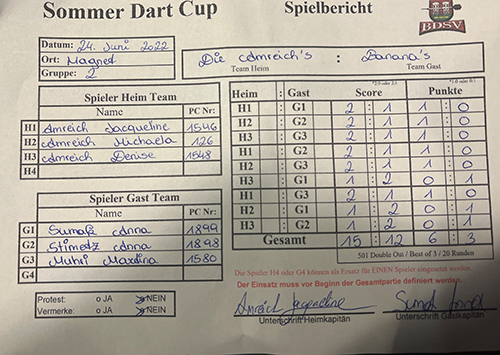 Sommer Dart Cup Spielbericht
BDSV
Datum: 24. Juni 2022
Ort: Magnet
Gruppe: 2
Die Amreich's : Banana's
Team Heim Team Gast
Spieler Heim Team
Name PC Nr:
H1 Amreich Jacqueline 1546
H2 Amreich Michaela 126
H3 Amreich Denise 1548
H4
Spieler Gast Team
Name PC Nr:
G1 Anna 1899
G2 Anna 1898
G3 Muhri Martina 1580
G4
Protest: o JA o NEIN
Vermerke: o JA o NEIN
*2:0 oder 2:1 *1:0 oder 0:1
Heim : Gast Score Punkte
H1 : G1 2 : 1 1 : 0
H2 : G2 2 : 1 1 : 0
H3 : G3 2 : 1 1 : 0
H1 : G2 2 : 1 1 : 0
H2 : G3 2 : 1 1 : 0
H3 : G1 1 : 2 0 : 1
H1 : G3 2 : 1 1 : 0
H2 : G1 1 : 2 0 : 1
H3 : G2 1 : 2 0 : 1
Gesamt 15 : 12 6 : 3
501 Double Out / Best of 3 / 20 Runden
Die Spieler H4 oder G4 können als Ersatz für EINEN Spieler eingesetzt werden.
Der Einsatz muss vor Beginn der Gesamtpartie definiert werden.
Amreich Jacqueline
Unterschrift Heimkapitän Unterschrift Gastkapitän